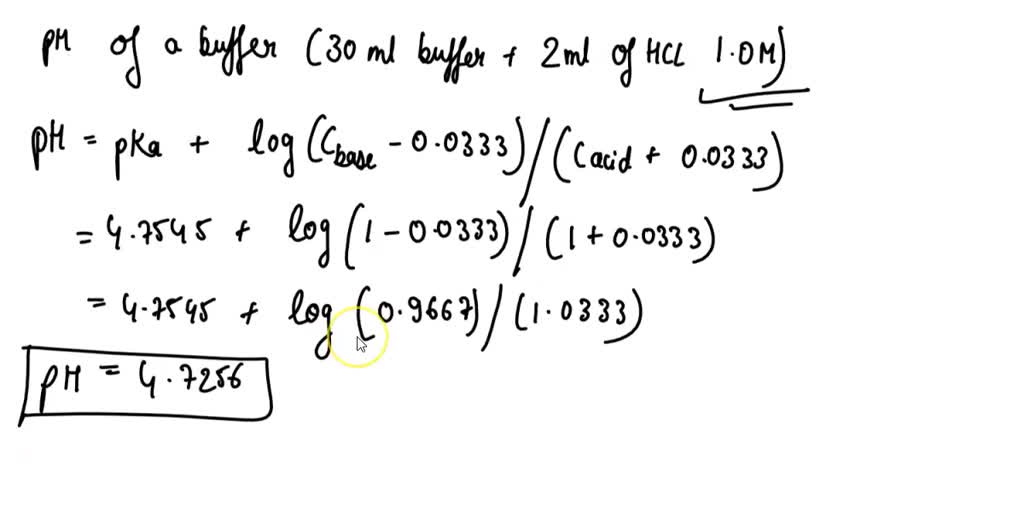 pH of a buffer (30 ml buffer + 2ml of HCL 1.0M)
pH = pKa + log(Cbase - 0.0333)/(Cacid + 0.0333)
= 4.7545 + log(1 - 0.0333)/(1 + 0.0333)
= 4.7545 + log(0.9667)/(1.0333)
pH = 4.7256